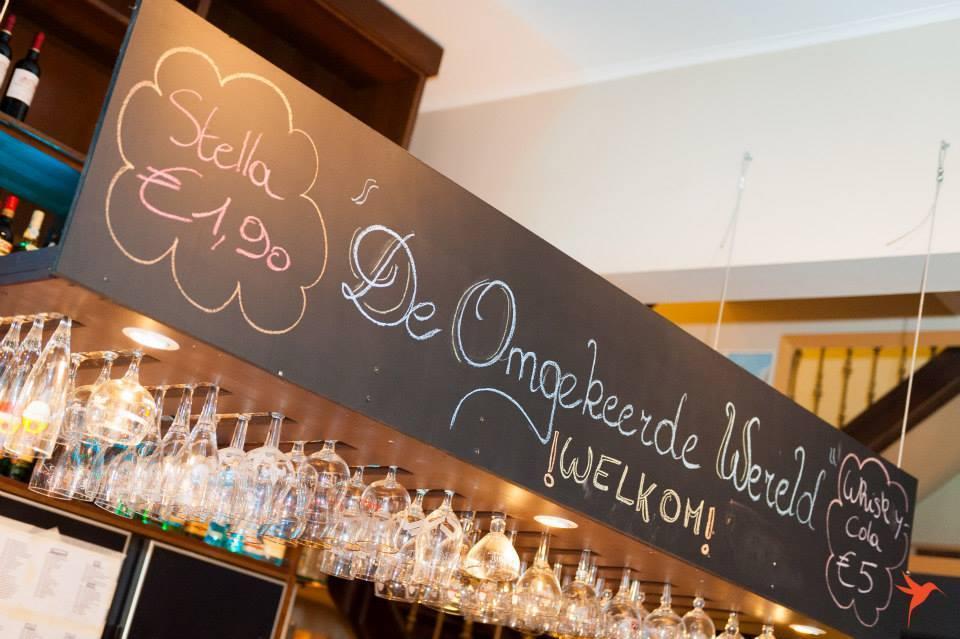 Stella
€1,90
"De Omgekeerde Wereld"
!WELKOM!
Whiskey-
Cola
€5